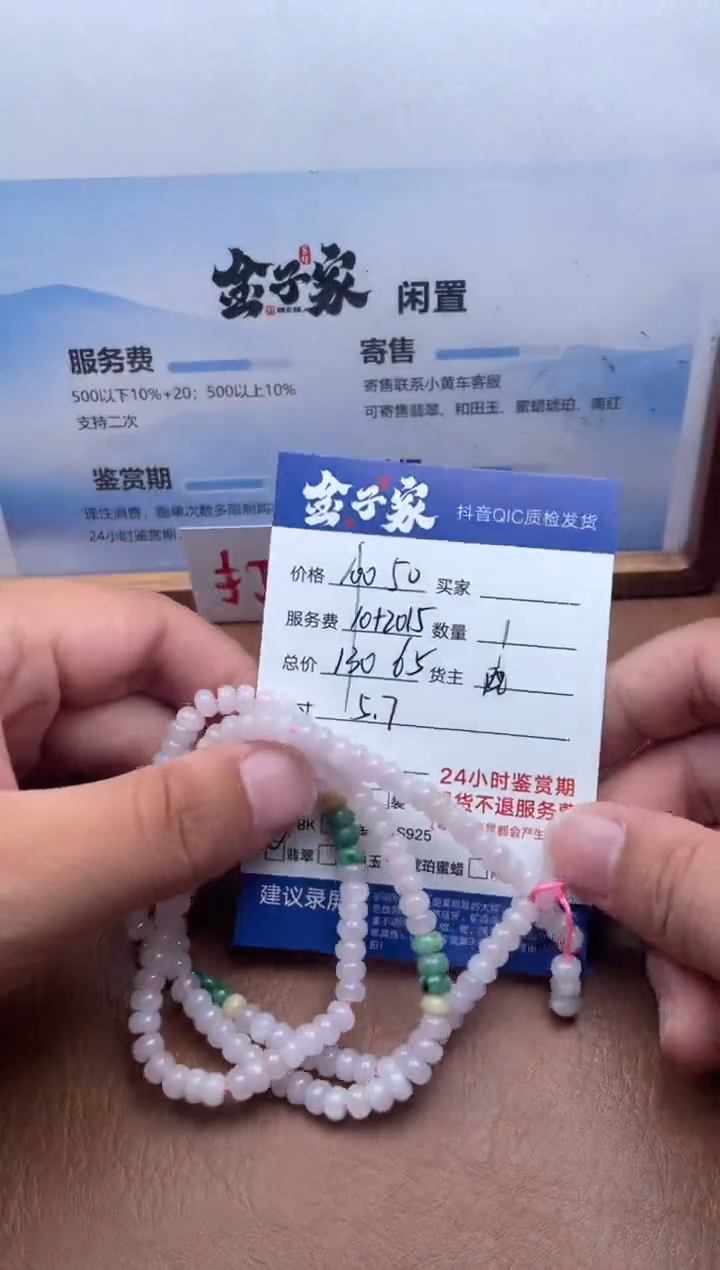 金子家 闲置
服务费
500以下10%+20；500以上10%
支持二次
寄售
寄售联系小黄车客服
可寄售翡翠、和田玉、蜜蜡琥珀、南红
鉴赏期
理性消费，
24小时鉴赏期
金子家 抖音QIC质检发货
价格 100 50 买家
服务费 10+20 15 数量 1
总价 130 65 货主
寸 5.7
24小时鉴赏期
货不退服务费
8K S925
翡翠 玉 琥珀蜜蜡
建议录屏